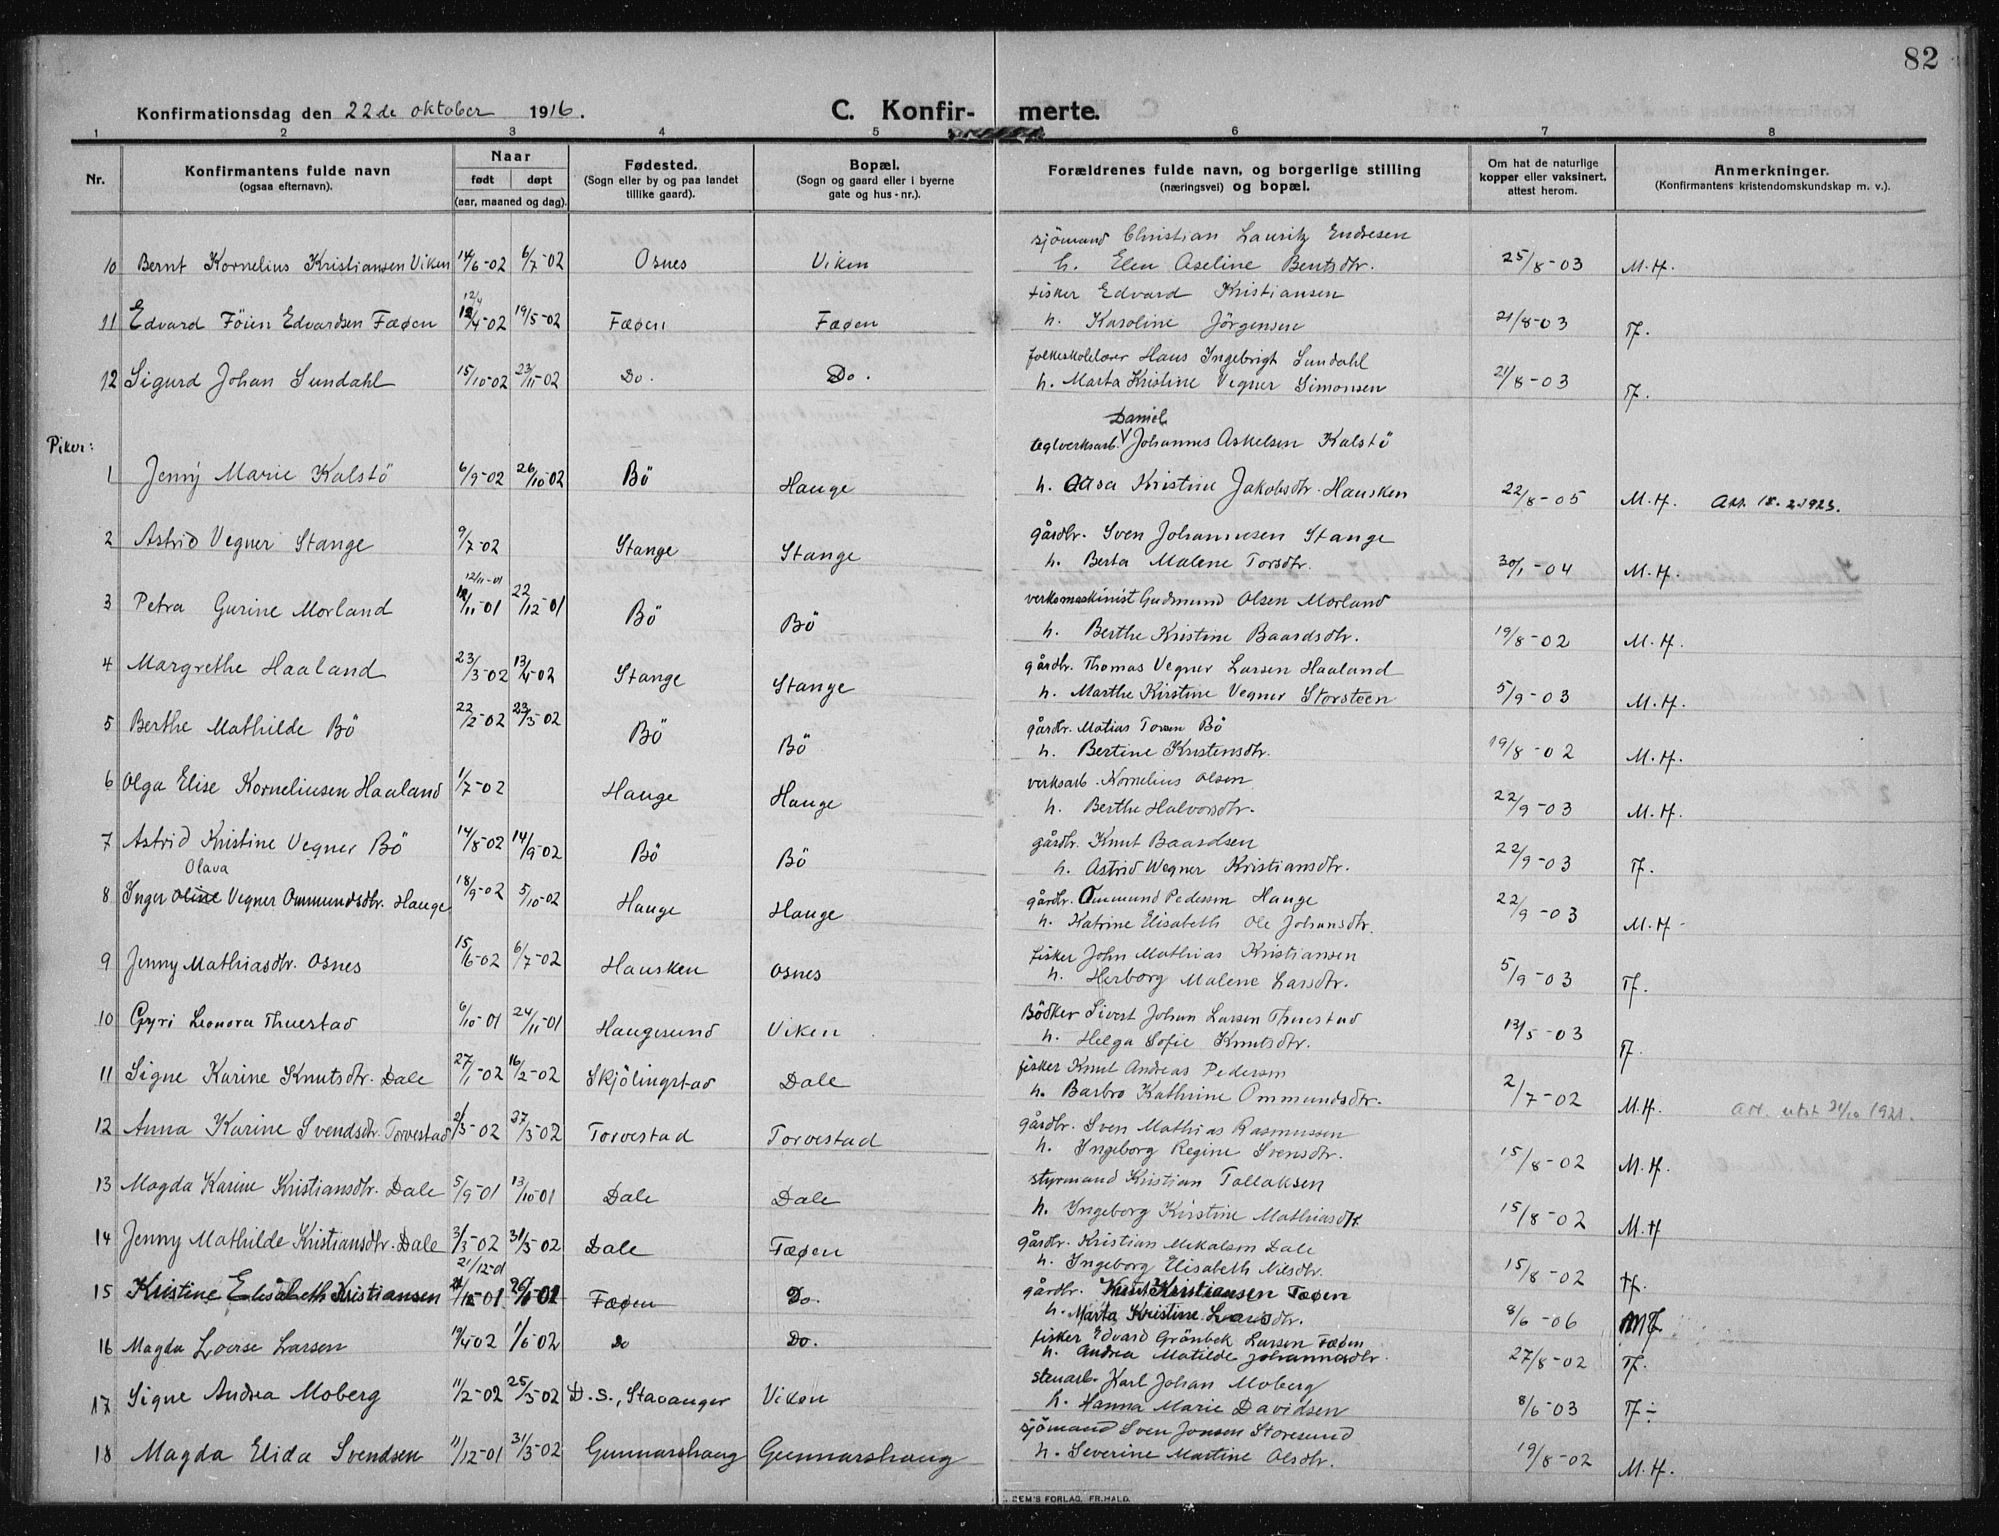 82
Konfirmationsdag den 22de oktober 1916.
C. Konfir- merte.
1 2 3 4 5 6 7 8
Nr. Konfirmantens fulde navn (ogsaa efternavn). Naar født døpt (aar, maaned og dag). Fødested. (Sogn eller by og paa landet tillike gaard). Bopæl. (Sogn og gaard eller i byerne gate og hus-nr.). Forældrenes fulde navn, og borgerlige stilling (næringsvei) og bopæl. Om hat de naturlige kopper eller vaksinert, attest herom. Anmerkninger. (Konfirmantens kristendomskundskap m. v.).
sjömand Christian Lauritz Endresen
10 Bernt Kornelius Kristiansen Viken 14/6-02 6/7-02 Osnes Viken h. Elen Aseline Bentsdtr. 25/8-03 M.H.
fisker Edvard Kristiansen
12/4
11 Edvard Föien Edvardsen Fæøen 12/4-02 19/5-02 Fæøen Fæøen h. Karoline Jörgensen 21/8-03 Tf.
folkeskolelærer Hans Ingebrigt Sundahl
12 Sigurd Johan Sundahl 15/10-02 23/11-02 Do. Do. h. Marta Kristine Vegner Simonsen 21/8-03 Tf.
Daniel
Piker:
teglverksarb. Johannes Askelsen Kalstö
1 Jenny Marie Kalstö 6/9-02 26/10-02 Bö Hauge h. Aasa Kristine Jakobsdtr. Hausken 22/8-05 M.H. Att. 18.2.1923.
gårdbr. Sven Johannesen Stange
2 Astrid Vegner Stange 9/7-02 Stange Stange h. Berta Malene Torsdtr. 30/1-04 M.H.
12/11-01
verksmaskinist Gudmund Olsen Morland
3 Petra Gurine Morland 12/11-01 22/12-01 Bö Bö h. Berthe Kristine Baardsdtr. 19/8-02 M.H.
gårdbr. Thomas Vegner Larsen Haaland
4 Margrethe Haaland 23/3-02 13/4-02 Stange Stange h. Marthe Kirstine Vegner Storsteen 5/9-03 M.H.
gårdbr. Matias Torsen Bö
5 Berthe Mathilde Bö 22/2-02 23/3-02 Bö Bö h. Bertine Kristensdtr. 19/8-02 M.H.
verksarb. Kornelius Olsen
6 Olga Elise Korneliusen Haaland 1/7-02 Hauge Hauge h. Berthe Halvorsdtr. 22/9-03 M.H.
gårdbr. Knut Baardsen
7 Astrid Kristine Vegner Bö 14/8-02 14/9-02 Bö Bö h. Astrid Wegner Kristiansdtr. 22/9-03 Tf.
Olava
gårdbr. Ommund Pedersen Hauge
8 Inger Oline Vegner Ommundsdtr. Hauge 18/9-02 5/10-02 Hauge Hauge h. Katrine Elisabeth Ole Johansdtr. 22/9-03 M.H.
fisker John Mathias Kristiansen
9 Jenny Mathiasdtr. Osnes 15/6-02 6/7-02 Hausken Osnes h. Herborg Malene Larsdtr. 5/9-03 Tf.
Bödker Sivert Johan Larsen Thuestad
10 Gyri Leonora Thuestad 6/10-01 24/11-01 Haugesund Viken h. Helga Sofie Knutsdtr. 13/5-03 Tf.
fisker Knut Andreas Pedersen
11 Signe Karine Knutsdtr. Dale 27/1-02 16/2-02 Skjölingstad Dale h. Barbro Kathrine Ommundsdtr. 2/7-02 M.H. Att. utst. 21/10 1921.
gårdbr. Sven Mathias Rasmussen
12 Anna Karine Svendsdtr. Torvestad 2/3-02 27/3-02 Torvestad Torvestad h. Ingeborg Regine Svensdtr. 15/8-02 M.H.
styrmand Kristian Tollaksen
13 Magda Karine Kristiansdtr. Dale 5/9-01 13/10-01 Dale Dale h. Ingeborg Kirstine Mathiasdtr. 15/8-02 M.H
gårdbr. Kristian Mikalsen Dale
14 Jenny Mathilde Kristiansdtr. Dale 3/3-02 31/3-02 Dale Fæøen h. Ingeborg Elisabeth Nilsdtr. 15/8-02 Tf.
21/12-01
gårdbr. Knut Kristiansen Fæøen
15 Kristine Elisabeth Kristiansen 21/12-01 Fæøen Do. h. Marta Kristine Larsdtr. 8/6-06
fisker Edvard Grönbek Larsen Fæøen
16 Magda Lovise Larsen 19/4-02 1/6-02 Do Do. h. Andrea Matilde Johannesdtr. 27/8-02 Tf.
stenarb. Karl Johan Moberg
17 Signe Andrea Moberg 11/2-02 25/3-02 D.S., Stavanger Viken h. Hanna Marie Davidsen 8/6-03 Tf ÷
sjömand Sven Jonsen Storesund
18 Magda Elida Svendsen 11/12-01 31/3-02 Gunnarshaug Gunnarshaug h. Severine Martine Olsdtr. 19/8-02 M.H.
DEM'S FORLAG, FR. HALD.